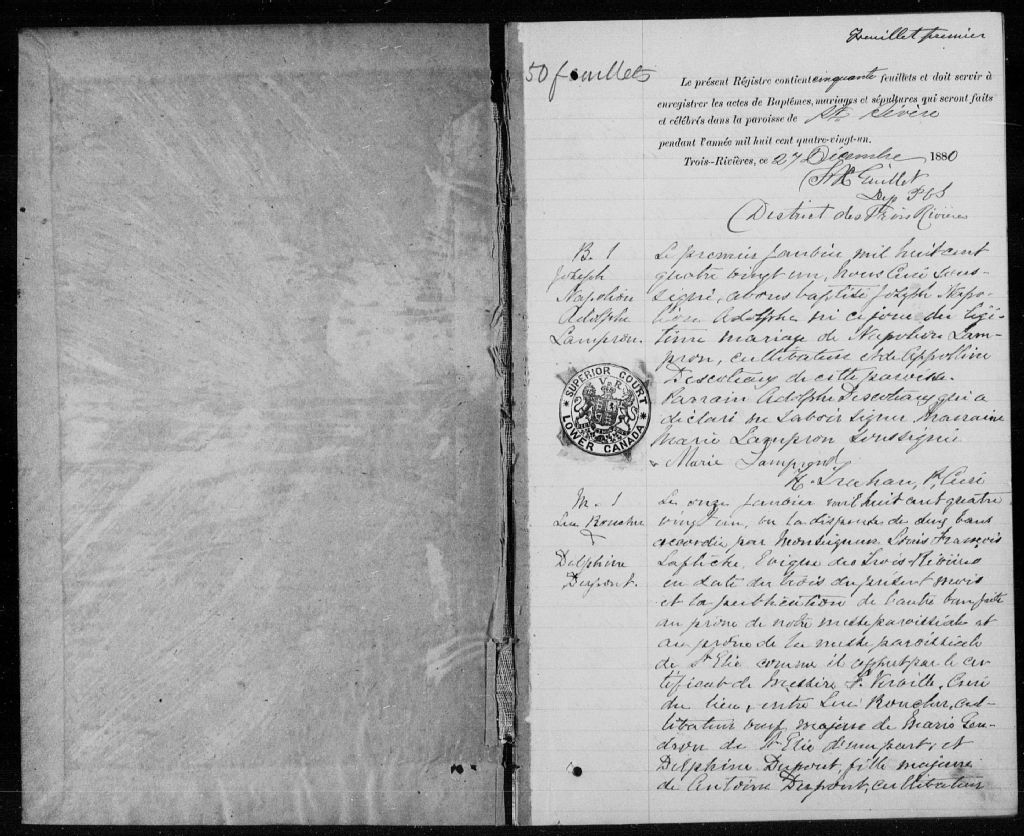 Feuillet premier
50 feuillets
Le présent Régistre contient cinquante feuillets et doit servir à
enregistrer les actes de Baptêmes, mariages et sépultures qui seront faits
et célébrés dans la paroisse de Ste Sévère
pendant l'année mil huit cent quatre-vingt-un.
Trois--Rivières, ce 27 Décembre 1880
Guillet
Dep P C S
District des Trois Rivières
B. 1
Joseph
Napoléon
Adolphe
Lampron.
Le premier janvier mil huit cent
quatre vingt un, nous Curé sous-
signé, avons baptisé Joseph Napo-
léon Adolphe né ce jour du légi-
time mariage de Napoléon Lam-
pron, cultivateur et de Appoline
Descoteaux de cette paroisse.
Parrain Adolphe Descoteaux qui a
déclaré ne savoir signer Marraine
Marie Lampron soussignée
Marie Lampron
H. Trahan, Ptre Curé
SUPERIOR COURT
V R
LOWER CANADA
M. 1
Luc Boucher
&
Delphine
Dupont.
Le onze janvier mil huit cent quatre
vingt un, vu la dispense de deux bans
accordée par Monseigneur Louis François
Laflèche, Evêque des Trois-Rivières
en date du trois du présent mois
et la publication de l'autre ban faite
au prône de notre messe paroissiale et
au prône de la messe paroissiale
de St Elie comme il appert par le cer-
tificat de Messire F. Verville, Curé
du lieu, entre Luc Boucher, cul-
tivateur veuf majeur de Marie Gen-
dron de St Elie d'une part; et
Delphine Dupont, fille majeure
de Antoine Dupont, cultivateur